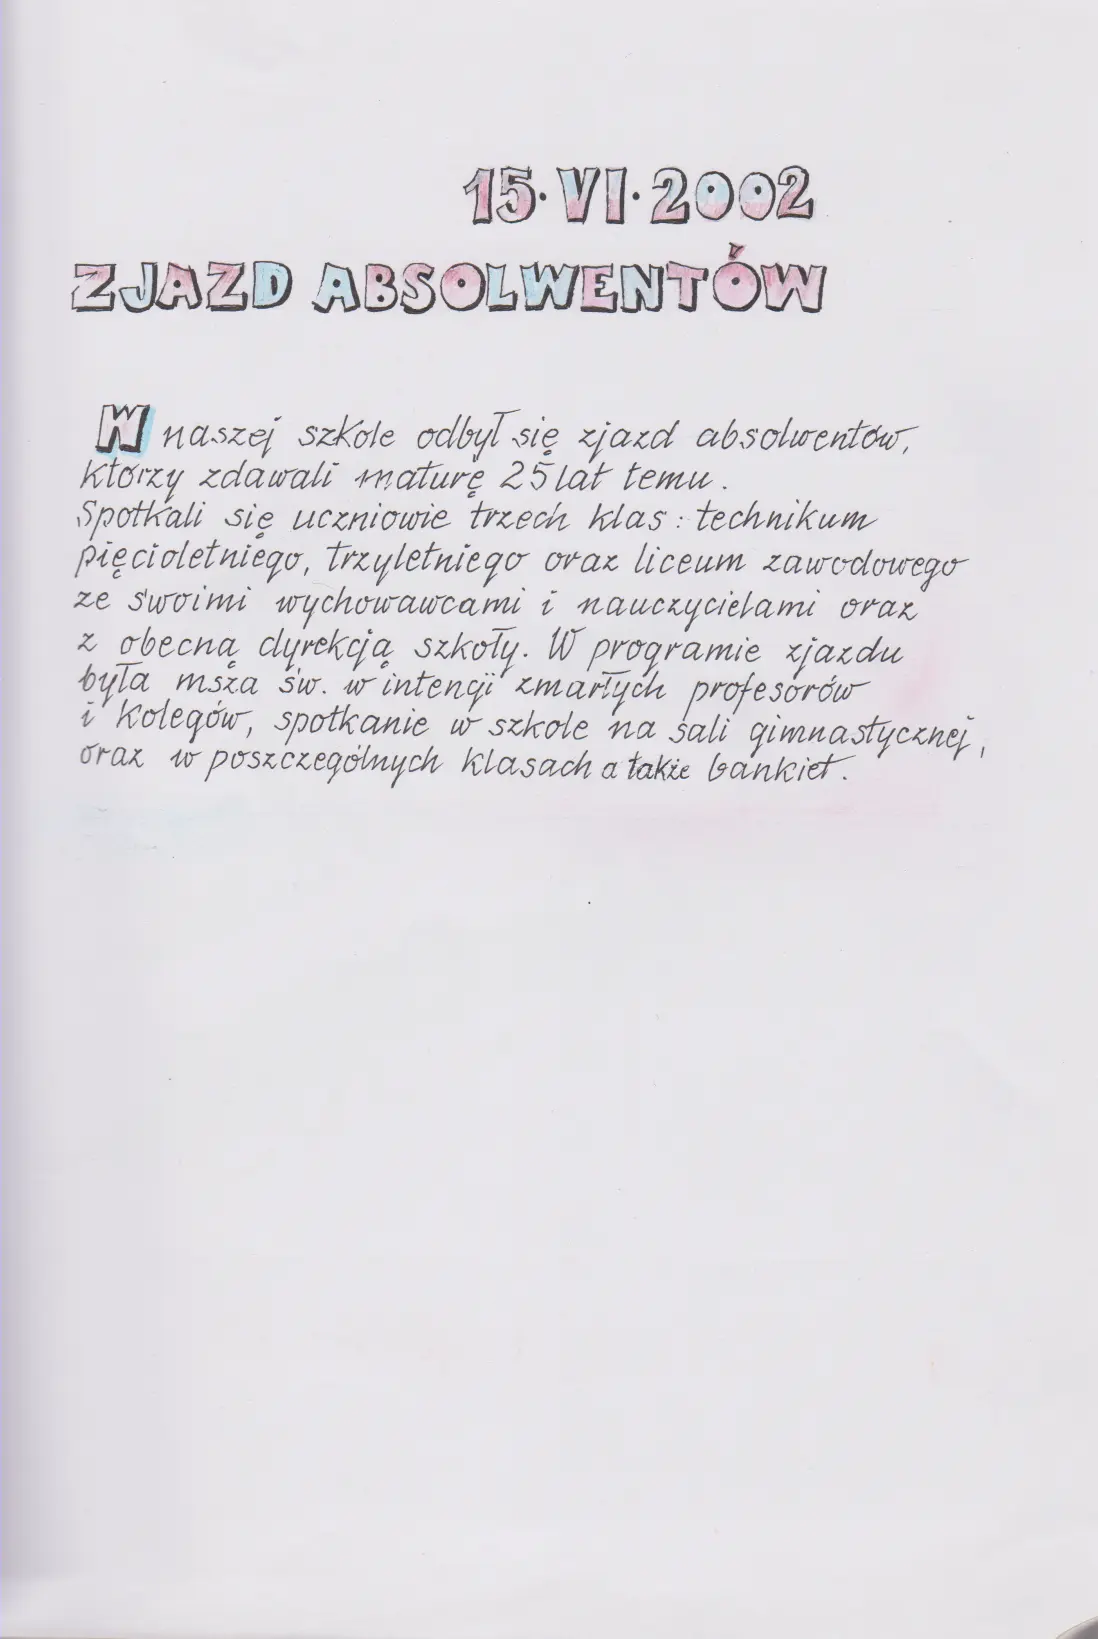 15·VI·2002
ZJAZD ABSOLWENTÓW
W naszej szkole odbył się zjazd absolwentów,
którzy zdawali maturę 25 lat temu.
Spotkali się uczniowie trzech klas: technikum
pięcioletniego, trzyletniego oraz liceum zawodowego
ze swoimi wychowawcami i nauczycielami oraz
z obecną dyrekcją szkoły. W programie zjazdu
była msza św. w intencji zmarłych profesorów
i kolegów, spotkanie w szkole na sali gimnastycznej,
oraz w poszczególnych klasach a także bankiet.